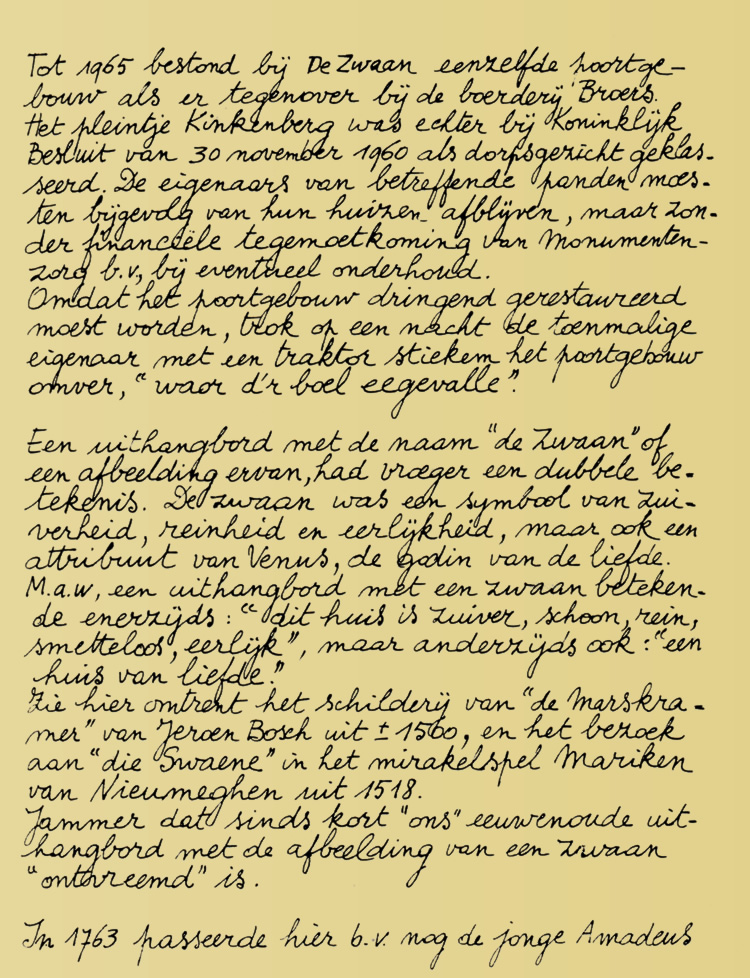 Tot 1965 bestond bij De Zwaan eenzelfde poortge-
bouw als er tegenover bij de boerderij Broers.
Het pleintje Kinkenberg was echter bij Koninklijk
Besluit van 30 november 1960 als dorpsgezicht geklas-
seerd. De eigenaars van betreffende panden moes-
ten bijgevolg van hun huizen afblijven, maar zon-
der financiële tegemoetkoming van Monumenten-
zorg b.v., bij eventueel onderhoud.
Omdat het poortgebouw dringend gerestaureerd
moest worden, trok op een nacht de toenmalige
eigenaar met een traktor stiekem het poortgebouw
omver, "waor d'r boel eegevalle".
Een uithangbord met de naam "de Zwaan" of
een afbeelding ervan, had vroeger een dubbele be-
tekenis. De zwaan was een symbool van zui-
verheid, reinheid en eerlijkheid, maar ook een
attribuut van Venus, de godin van de liefde.
M.a.w, een uithangbord met een zwaan beteken-
de enerzijds: "dit huis is zuiver, schoon, rein,
smetteloos, eerlijk", maar anderzijds ook: "een
huis van liefde."
Zie hier omtrent het schilderij van "de Marskra-
mer" van Jeroen Bosch uit ± 1500, en het bezoek
aan "die Swaene" in het mirakelspel Mariken
van Nieumeghen uit 1518.
Jammer dat sinds kort "ons" eeuwenoude uit-
hangbord met de afbeelding van een zwaan
"ontvreemd" is.
In 1763 passeerde hier b.v. nog de jonge Amadeus